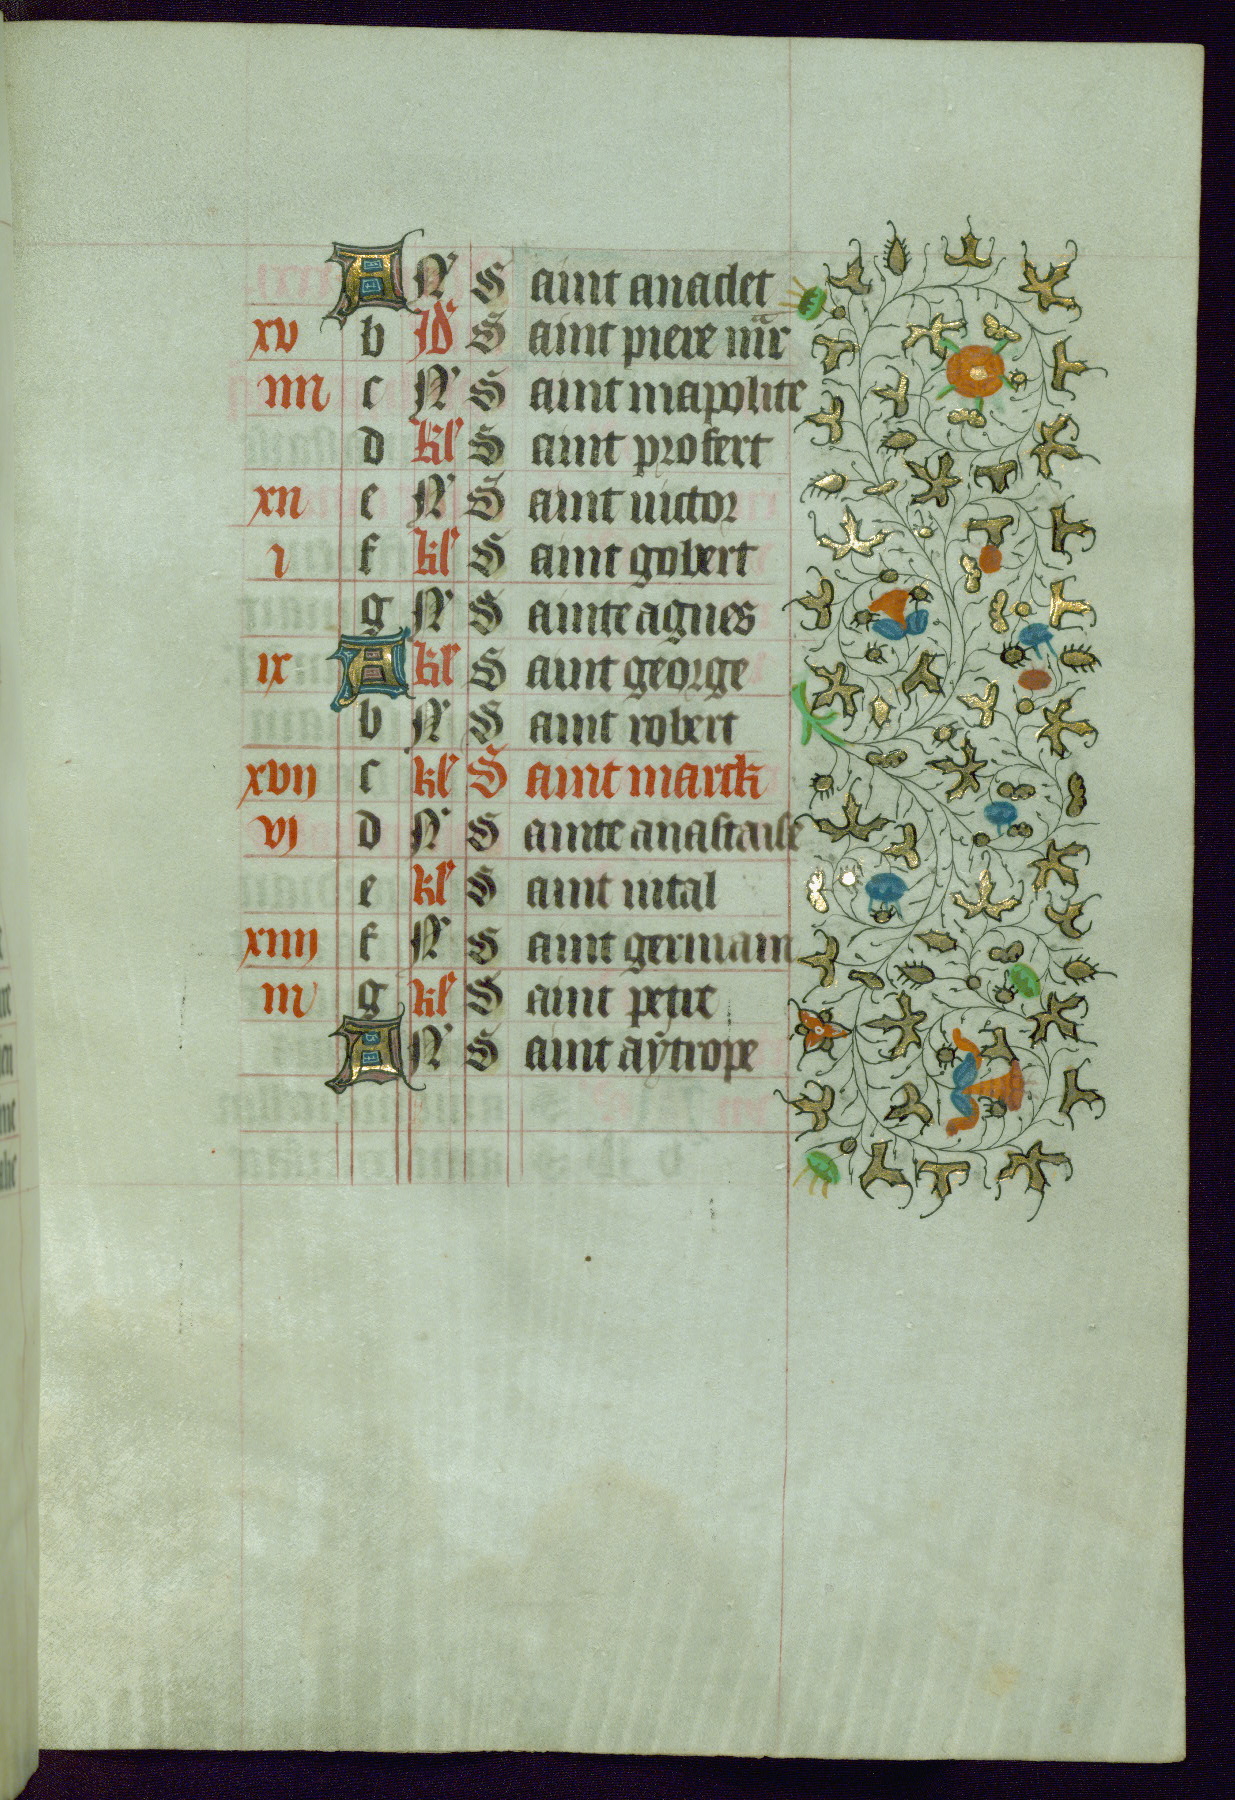 A N' S aint anaclet
xv b Id' S aint piere m̄r
iiii c N' S aint mapolite
d kl' S aint profert
xii e N' S aint uictor
i f kl' S aint gobert
g N' S ainte agnes
ix A kl' S aint george
b N' S aint robert
xvii c kl' S aint marck
vi d N' S ainte anastaise
e kl' S aint uital
xiiii f N' S aint germain
iii g kl' S aint petre
A N' S aint aytrope